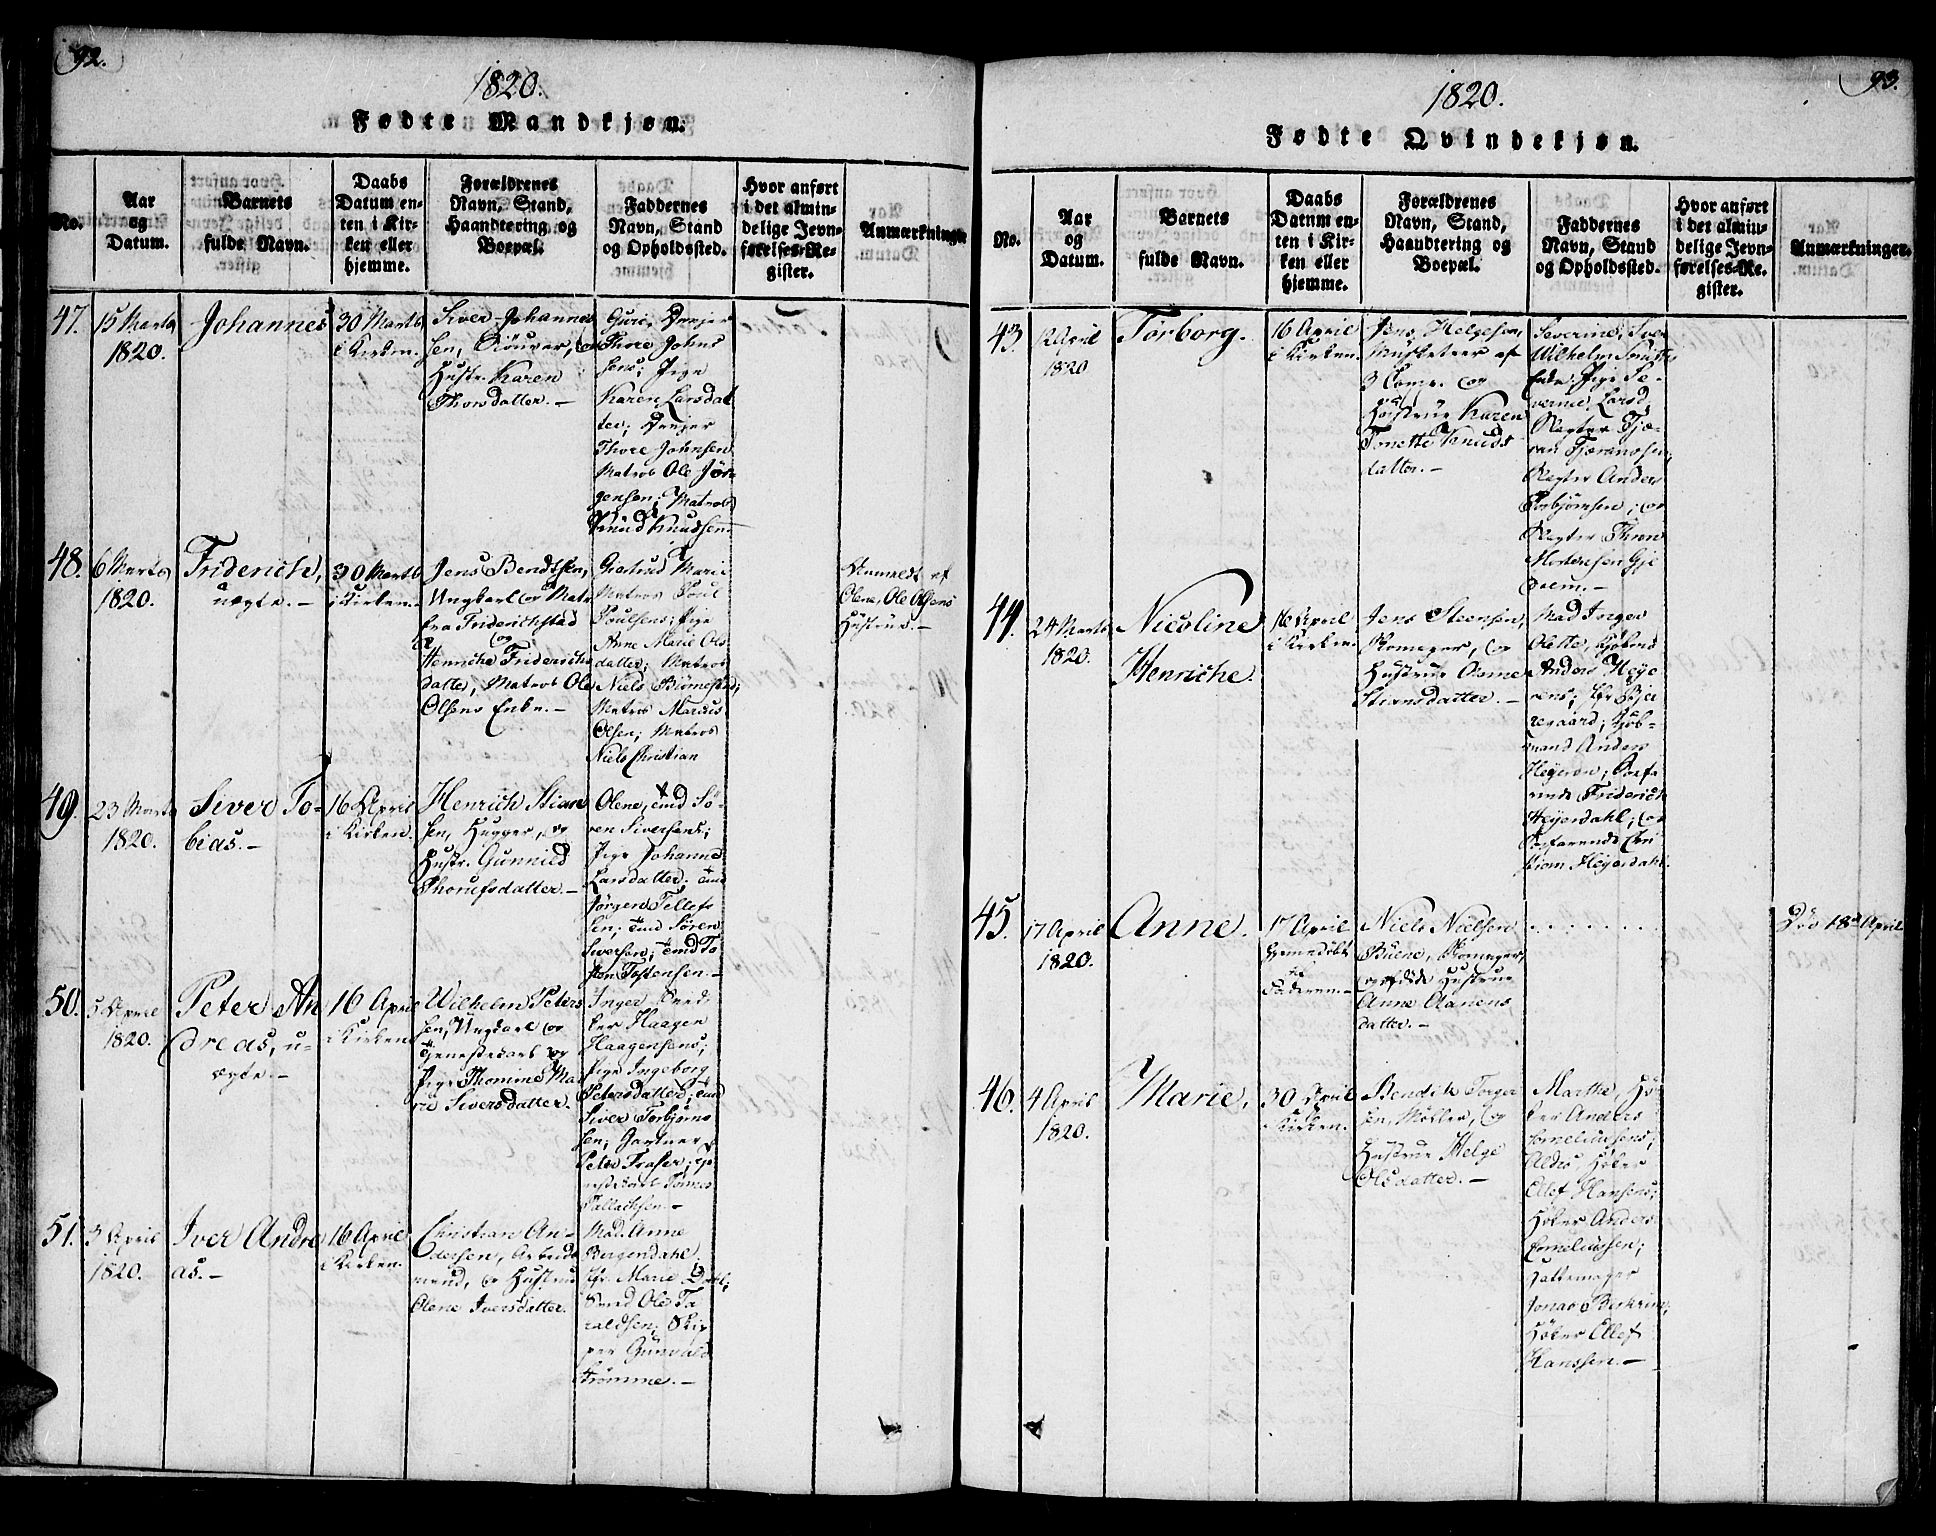 92.
1820.
Fødte Mandkjøn.
No.
Aar
og
Datum.
Barnets
fulde Navn.
Daabs
Datum en-
ten i Kir-
ken eller
hjemme.
Forældrenes
Navn, Stand,
Haandtering og
Boepæl.
Faddernes
Navn, Stand
og Opholdssted.
Hvor anført
i det almin-
delige Jevn-
førelses-Re-
gister.
Anmærkninger
47.
15 Marts
1820.
Johannes
30 Marts
i Kirken.
Siver Johannes
sen,
Hustr. Karen
Thorsdatter.-
Guri,
Thore Johns
sens; Pige
Karen Larsdat
ter;
Thore Johnsen
Matros Ole Jör
gensen; Matros
Knud Knudsen
48.
6 Marts
1820.
Friderich,
uægte.-
30 Marts
i Kirken.
Jens Bendtsen,
Ungkarl og Matr
fra Friderichstad
og
Henriche Friderichs
datter, Matros Ole
Olsens Enke.-
Giertrud Marie
Matros Poul
Poulsens; Pige
Anne Marie Ols
datter; Matros
Niels
Matros Marcus
Olsen; Matros
Niels Christian
af
Olene, Ole Olsens
Hustrue.-
49.
23 Marts
1820.
Siver To-
bias.-
16 April
i Kirken.
Henrich Stian
sen, og
Hustr. Gunnild
Thorufsdatter.-
Olene, Sö-
ren Siversens;
Pige Johanne
Larsdatter.
Jørgen Tellefs
sen; Sören
Siversen;
Tostensen.-
50.
5 April
1820.
Peter An
dreas, u-
ægte.-
16 April
i Kirken
Wilhelm Peters
sen, Ungkarl og
Tjenestekarl og
Pige Thomine Ma
rie Siversdatter.
Inger,
Haagen
Haagensens;
Pige Ingeborg
Petersdatter;
Siver Torbjørns
sen; Gartner
Peter Fraser;
Tallachsen.-
51.
3 April
1820.
Iver Andre
as.-
16 April
i Kirken.
Christian An-
dersen, Arbeids
mand, og Hustrue
Olene Iversdatter.
Mad. Anne
Bergendahl,
Jfr. Marie Dahl;
Svend Ole Ta
raldsen; Skip
per Gunvald
Frømme.-
93.
1820.
Fødte Qvindekjøn.
No.
Aar
og
Datum.
Barnets
fulde Navn.
Daabs
Datum en-
ten i Kir-
ken eller
hjemme.
Forældrenes
Navn, Stand,
Haandtering og
Boepæl.
Faddernes
Navn, Stand
og Opholdssted.
Hvor anført
i det almin-
delige Jevn-
førelses-Re-
gister.
Anmærkninger.
43.
2 April
1820
Torborg.
16 April
i Kirken.
Jens Helgesen,
Musketeer af
3 Comp. og
Hustrue Karen
Tonette Knuds
datter.-
Severine, Iver
Wilhelm Smith
Enke; Pige Se-
verine Larsd.
Tjø-
Anders
Torbjørnsen; og
Mortensen Gje
44.
24 Marts
1820.
Nicoline
Henriche.
16 April
i Kirken.
Jens Steensen,
Skomager, og
Hustrue Osme
Stiansdatter.-
Mad Inger
Olette, Kjøbmd
Anders Heye
rens; Jfr Bje
regaard; Kjøb-
mand Anders
Heyeren;
Friderich
Heyerdahl; og
Heyerdahl.
45.
17 April
1820.
Anne.
17 April
hjemmedöbt
af
Faderen.-
Niels Nielsen
Buene, Skomager,
og Hustrue
Anne Aanens
datter.-
. . . . . . . .
Död 18de April
46.
4 April
1820.
Marie,
30 April
i Kirken.
Bendik Torger
sen, Møller, og
Hustrue Helge
Olsdatter.-
Marthe, Hö-
ker Anders
Corneliussens;
Höker
Ellef Hansens;
Höker Anders
Corneliussen;
Hattemager
Jonas
Höker Ellef
Hanssen.-